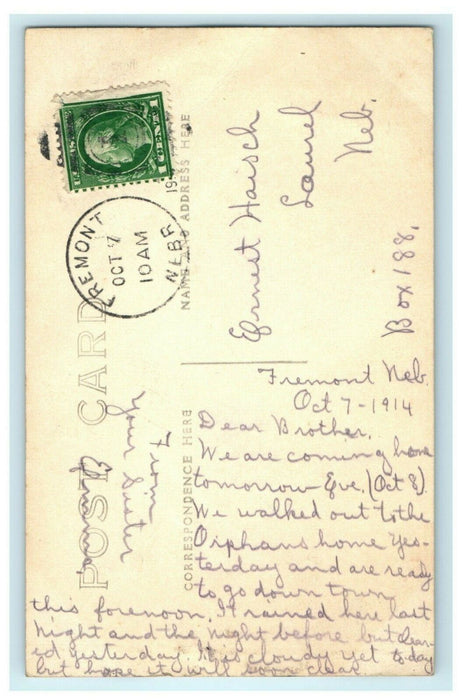 POST CARD
1 CENT 1
FREMONT
OCT 7
10 AM
NEBR
19
NAME AND ADDRESS HERE
Ernest Haisch
Laurel
Neb.
Box 188,
CORRESPONDENCE HERE
Fremont Neb.
Oct 7-1914
Dear Brother,
We are coming home
tomorrow Eve. (Oct 8).
We walked out to the
Orphans home yes-
terday and are ready
to go down town
this forenoon. It rained here last
night and the night before but clear-
ed yesterday. It is cloudy yet today
but hope it will soon clear.
From
Your Sister
Emma